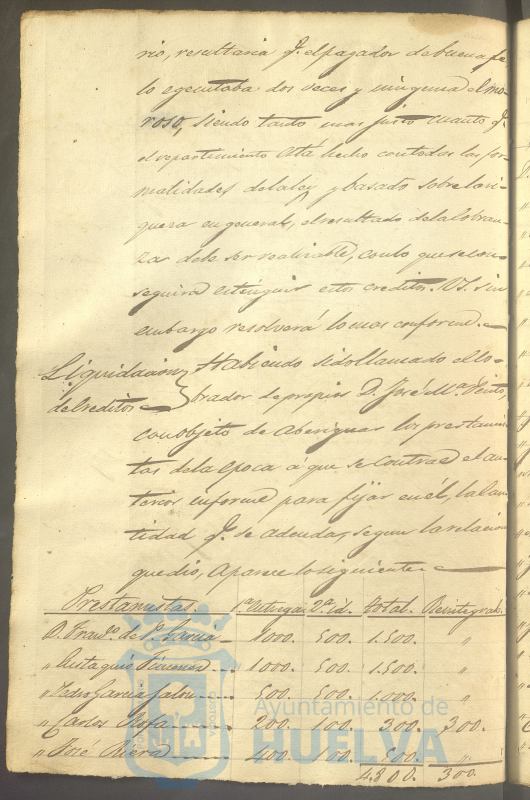 rio, resultaria q.e el pagador de buena fe,
lo egecutaba dos veces y ninguna el mo-
roso, siendo tanto mas justo cuanto q.e
el repartimiento está hecho con todas las for-
malidades de la ley y basado sobre la ri-
queza en general, el resultado de la cobran-
za debe ser realizable, con lo que se con-
seguirá estinguir estos creditos. V.S. sin
embargo resolverá lo mas conforme.
Liquidacion
de Creditos
Habiendo sido llamado el Co-
brador de propios D. José M.a
con objeto de aberiguar los prestamis-
tas de la epoca á que se contrae el an-
terior informe para fijar en él, la can-
tidad q.e se adeuda, segun la relacion
que dio, aparece lo siguiente
Prestamistas. 1.a Entrega. 2.a id. Total. Reintegrab.
D. Fran.co de P. Garcia 1000. 500. 1.500. "
" Eustaquio Jimenez 1000. 500. 1.500. "
" Pedro Garcia 500. 500. 1.000. "
" Carlos 200. 100. 300. 300.
" José Riera 400. 100. 500. "
4.800. 300.
Ayuntamiento de
HUELVA